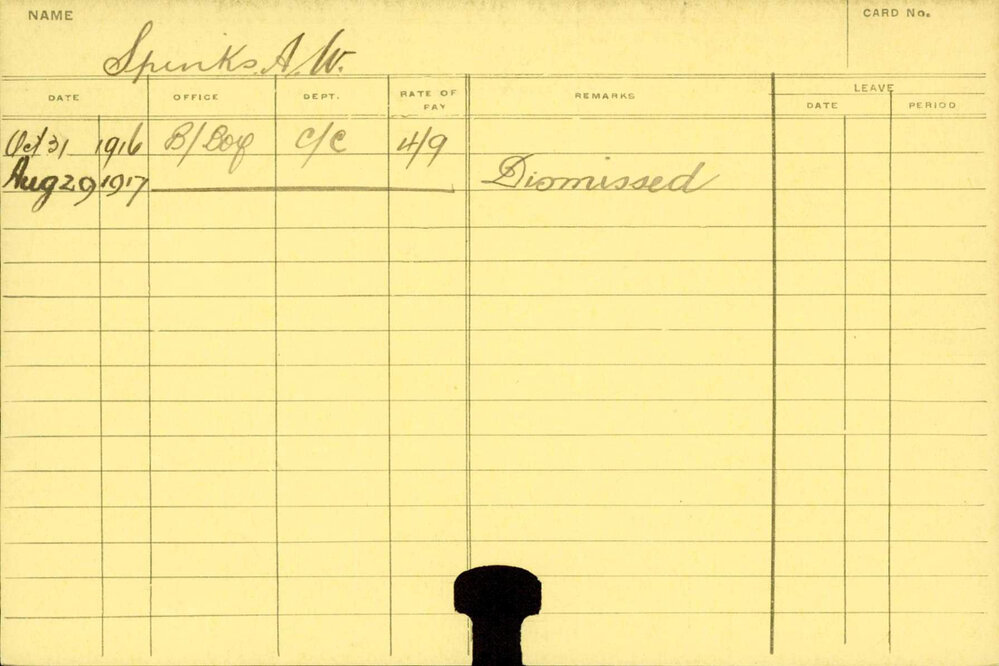 NAME
CARD No.
Spinks. A. W.
DATE OFFICE DEPT. RATE OF PAY REMARKS LEAVE
DATE PERIOD
Oct 31 1916 B/Boy C/C 4/9
Aug 29 1917 Dismissed